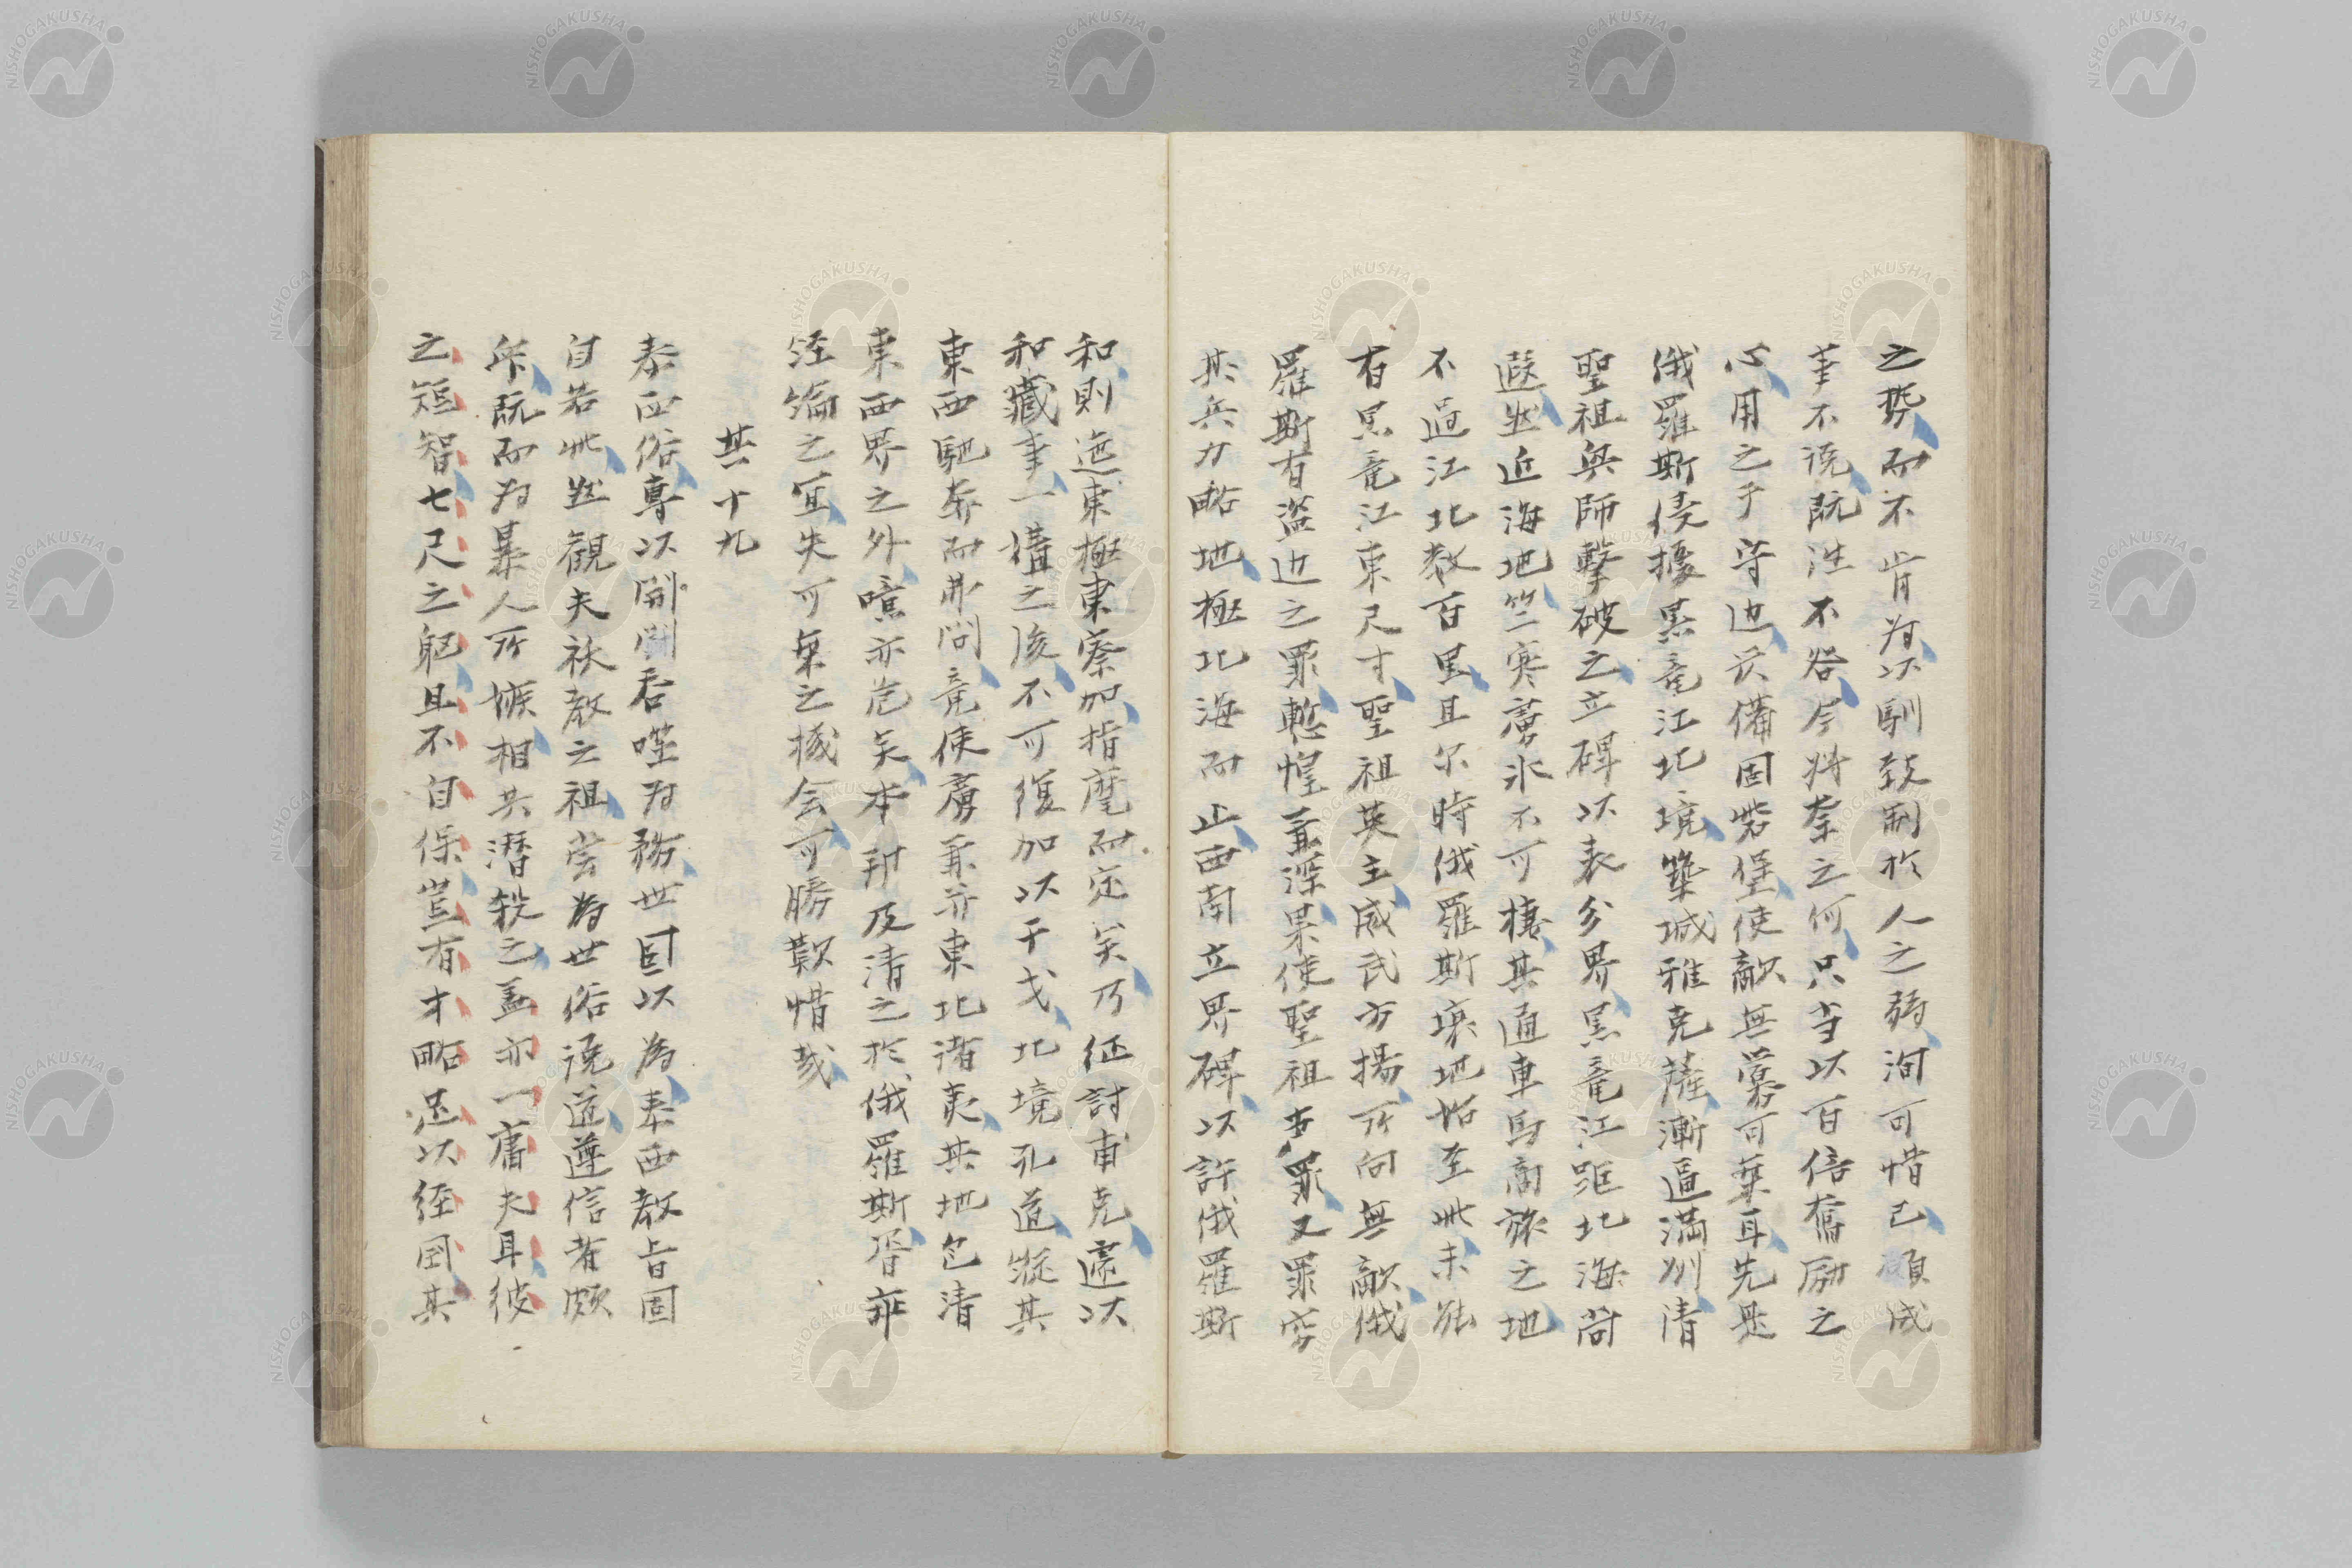 之勢而不肯為以馴致制於人之弱洵可惜已顧成
事不説既往不咎今将奈之何只当以百倍奮励之
心用之于守边兵備固砦堡使敵無釁可乗耳先是
俄羅斯侵擾黒竜江北境築城雅克薩漸逼満州清
聖祖興師擊破之立碑以表分界黒竜江距北海尚
遐然近海地竺寒薄氷不可棲其通車馬商旅之地
不過江北数百里且尓時俄羅斯壌地始至此未能
有黒竜江東尺寸聖祖英主威武方揚所向無敵俄
羅斯有盗边之罪慙惶深果使聖祖罪又罪穷
其兵力略地極北海而止西南立界碑以許俄羅斯
和則迤東極東察加指麾而定矣乃征討甫克遽以
和蔵事一搆之後不可復加以干戈北境孔道凝其
東西馳弃而弗問竟使虜兼并東北諸夷其地包清
東西界之外噫亦危矣本邦及清之於俄羅斯胥
経綸之宜失可乗之機会可勝歎惜哉
其十九
泰西俗専以開闢吞噬為務世目以為泰西教旨固
自若此然観夫祅教之祖嘗為世俗説道遵信者頗
既而為暴人所嫉相共潜殺之蓋亦一庸夫耳彼
之短智七尺之躯且不自保豈有才略足以経国其